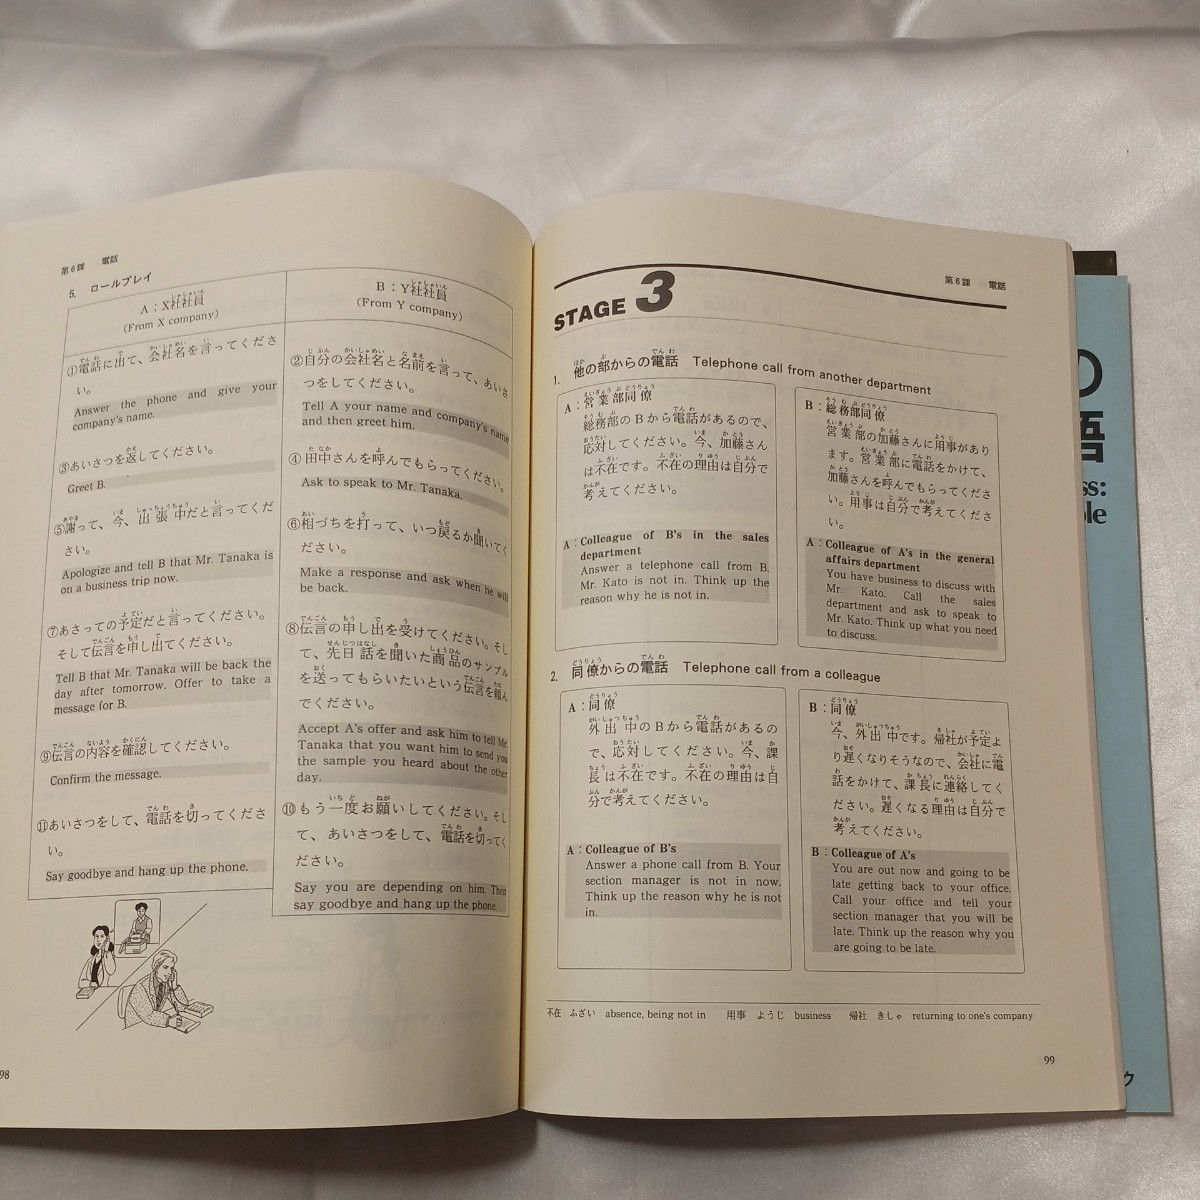 第6課 電話
5. ロールプレイ
A：X社社員
(From X company)
①電話に出て、会社名を言ってくださ
い。
Answer the phone and give your
company's name.
③あいさつを返してください。
Greet B.
⑤謝って、今、出張中だと言ってくだ
さい。
Apologize and tell B that Mr. Tanaka is
on a business trip now.
⑦あさっての予定だと言ってください。
そして伝言を申し出てください。
Tell B that Mr. Tanaka will be back the
day after tomorrow. Offer to take a
message for B.
⑨伝言の内容を確認してください。
Confirm the message.
⑪あいさつをして、電話を切ってくださ
い。
Say goodbye and hang up the phone.
B：Y社社員
(From Y company)
②自分の会社名と名前を言って、あいさ
つをしてください。
Tell A your name and company's name
and then greet him.
④田中さんを呼んでもらってください。
Ask to speak to Mr. Tanaka.
⑥相づちを打って、いつ戻るか聞いてく
ださい。
Make a response and ask when he will
be back.
⑧伝言の申し出を受けてください。そし
て、先日話を聞いた商品のサンプル
を送ってもらいたいという伝言を頼ん
でください。
Accept A's offer and ask him to tell Mr.
Tanaka that you want him to send you
the sample you heard about the other
day.
⑩もう一度お願いしてください。そし
て、あいさつをして、電話を切ってく
ださい。
Say you are depending on him. Then
say goodbye and hang up the phone.
98
第6課 電話
STAGE 3
1. 他の部からの電話 Telephone call from another department
A：営業部同僚
総務部のBから電話があるので、
応対してください。今、加藤さん
は不在です。不在の理由は自分で
考えてください。
A：Colleague of B's in the sales
department
Answer a telephone call from B.
Mr. Kato is not in. Think up the
reason why he is not in.
B：総務部同僚
営業部の加藤さんに用事があり
ます。営業部に電話をかけて、
加藤さんを呼んでもらってくださ
い。用事は自分で考えてくださ
い。
A：Colleague of A's in the general
affairs department
You have business to discuss with
Mr. Kato. Call the sales
department and ask to speak to
Mr. Kato. Think up what you need
to discuss.
2. 同僚からの電話 Telephone call from a colleague
A：同僚
外出中のBから電話があるの
で、応対してください。今、課
長は不在です。不在の理由は自
分で考えてください。
A：Colleague of B's
Answer a phone call from B. Your
section manager is not in now.
Think up the reason why he is not
in.
B：同僚
今、外出中です。帰社が予定よ
り遅くなりそうなので、会社に電
話をかけて、課長に連絡してく
ださい。遅くなる理由は自分で
考えてください。
B：Colleague of A's
You are out now and going to be
late getting back to your office.
Call your office and tell your
section manager that you will be
late. Think up the reason why you
are going to be late.
不在 ふざい absence, being not in 用事 ようじ business 帰社 きしゃ returning to one's company
99
の
語